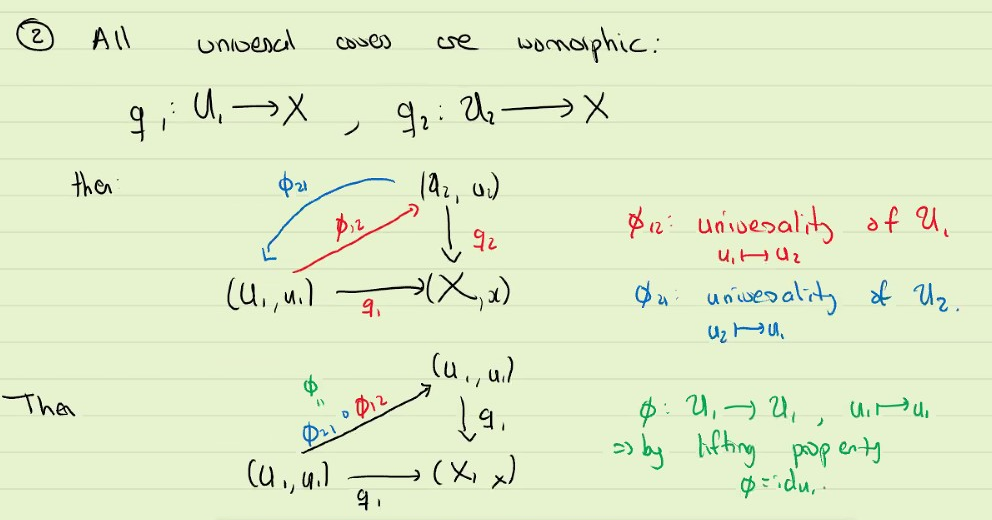 ② All universal coves are womorphic:
q₁: U₁ → X , q₂: U₂ → X
then:
ϕ₂₁ (q₂, u₂)
ϕ₁₂ q₂
(U₁, u₁) → (X, x)
q₁
ϕ₁₂: univesality of U₁
u₁ ↦ u₂
ϕ₂₁: univesality of U₂.
u₂ ↦ u₁
Then
(U₁, u₁)
ϕ
"
ϕ₂₁ ∘ ϕ₁₂ q₁
(U₁, u₁) → (X, x)
q₁
ϕ: U₁ → U₁ , u₁ ↦ u₁
⇒ by lifting property
ϕ = id U₁.